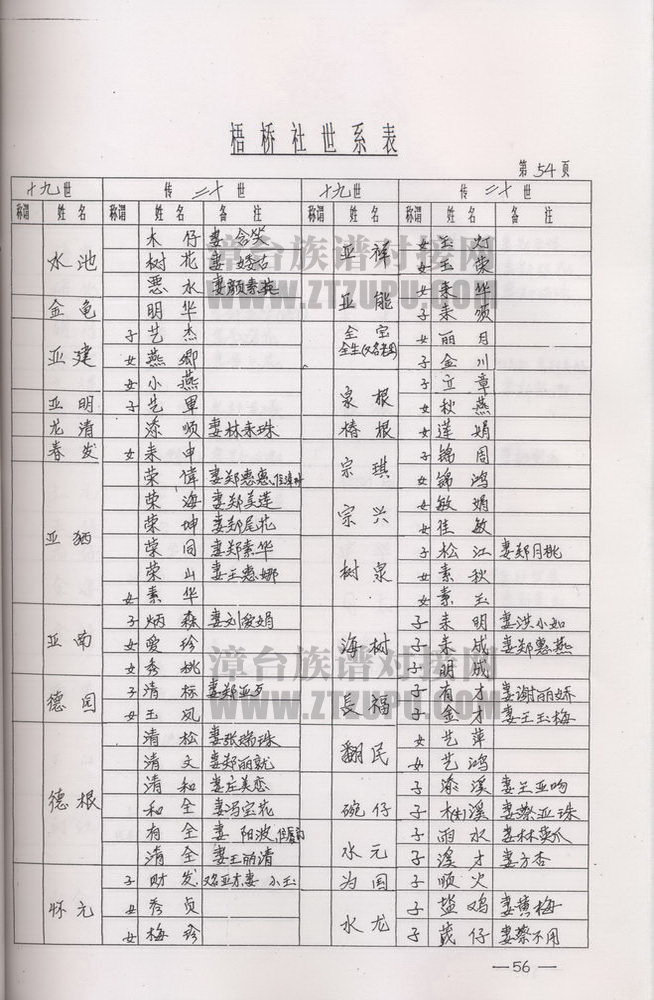 梧桥社世系表
第54页
十九世 传二十世 十九世 传二十世
称谓 姓名 称谓 姓名 备注 称谓 姓名 称谓 姓名 备注
水池 木仔 妻含笑 亚裤 女 玉灯
树花 女 玉荣
恶水 妻颜素英 亚能 女 来华
金龟 明华 子 来顺
亚建 子 艺杰 全宝 女 丽月
全生 子 金川
女 燕卿
女 小燕 泉根 子 立章
亚明 子 艺军 女 秋燕
龙清 添顺 妻林来珠 椿根 女 莲娟
春发 女 来申 宗琪 子 锦周
亚栖 荣伟 妻郑惠惠 女 锦鸿
荣海 妻郑美莲 宗兴 女 敏娟
荣坤 妻郑尾花 女 佳敏
荣同 妻郑素华 树泉 子 松江 妻郑月桃
荣山 妻王惠娜 女 素秋
女 素华 女 素玉
亚南 子 炳森 妻刘爱娟 海树 子 来明 妻洪小如
女 爱珍 子 来成 妻郑惠燕
女 秀桃 子 明成
德国 子 清标 妻郑亚歹 長福 子 有才 妻谢丽娇
女 玉凤 子 金才 妻王玉梅
德根 清松 妻张瑞珠 翻民 女 艺萍
清文 妻郑丽就 女 艺鸿
清和 妻庄美恋 碗仔 子 添溪 妻王亚吻
和全 妻冯宝花 子 溪 妻蔡亚珠
有全 妻 阳波 子 雨水
清全 妻王丽清 水元 子 溪才 妻方杏
怀元 子 财发 又名亚木妻 小玉 为国 子 顺火
女 秀贞 水龙 子 盐鸡 妻黄梅
女 梅珍 子 茂仔 妻蔡不用
漳台族谱对接网
WWW.ZTZUPU.COM
漳台族谱对接网
WWW.ZTZUPU.COM
—56—